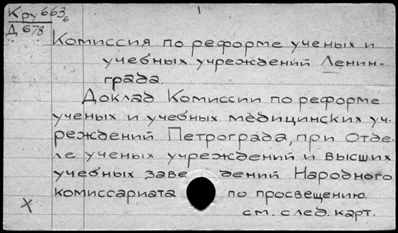 Кру 663б
Д 678
1
Комиссия по реформе ученых и
учебных учреждений Ленин-
града.
Доклад Комиссии по реформе
ученых и учебных медицинских уч-
реждений Петрограда, при Отде-
ле ученых учреждений и высших
учебных заве дений Народного
комиссариата по просвещению.
см. след. карт.
X